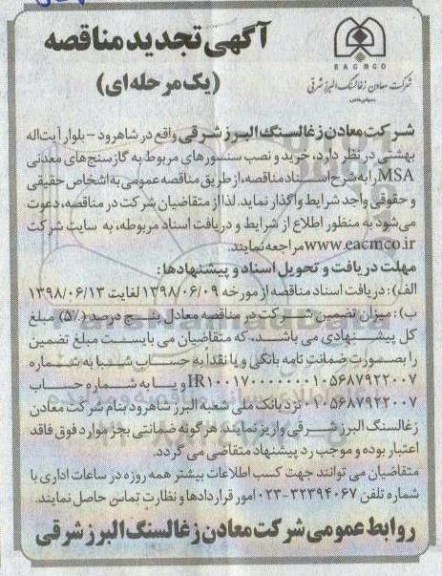 آگهی تجدید مناقصه
(یک مرحله‌ای)
EACMCO
شرکت معادن زغالسنگ البرز شرقی
شرکت معادن زغالسنگ البرز شرقی واقع در شاهرود - بلوار آیت‌اله
بهشتی در نظر دارد، خرید و نصب سنسورهای مربوط به گازسنج‌های معدنی
MSA رابه شرح اسناد مناقصه، از طریق مناقصه عمومی به اشخاص حقیقی
و حقوقی واجد شرایط واگذار نماید. لذا از متقاضیان شرکت در مناقصه، دعوت
می‌شود به منظور اطلاع از شرایط و دریافت اسناد مربوطه، به سایت شرکت
www.eacmco.ir مراجعه نمایند.
مهلت دریافت و تحویل اسناد و پیشنهادها:
الف): دریافت اسناد مناقصه از مورخه ۱۳۹۸/۰۶/۰۹ لغایت ۱۳۹۸/۰۶/۱۳
ب): میزان تضمین شرکت در مناقصه معادل پنج درصد (۵٪) مبلغ
کل پیشنهادی می باشد، که متقاضیان می بایست مبلغ تضمین
را بصورت ضمانت نامه بانکی و یا نقدا به حساب شبا به شماره
IR۱۰۰۱۷۰۰۰۰۰۰۰۱۰۵۶۸۷۹۲۲۰۰۷ و یا به شماره حساب
۰۱۰۵۶۸۷۹۲۲۰۰۷ نزد بانک ملی شعبه البرز شاهرود بنام شرکت معادن
زغالسنگ البرز شرقی واریز نمایند. هرگونه ضمانتی بجز موارد فوق فاقد
اعتبار بوده و موجب رد پیشنهاد متقاضی می گردد.
متقاضیان می توانند جهت کسب اطلاعات بیشتر همه روزه در ساعات اداری با
شماره تلفن ۳۲۳۹۴۰۶۷-۰۲۳ امور قراردادها و نظارت تماس حاصل نمایند.
روابط عمومی شرکت معادن زغالسنگ البرز شرقی